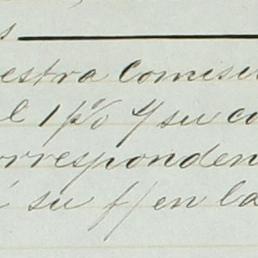 s
estra Comisi
l 1 p% y su co
orresponden
i su f/ en la